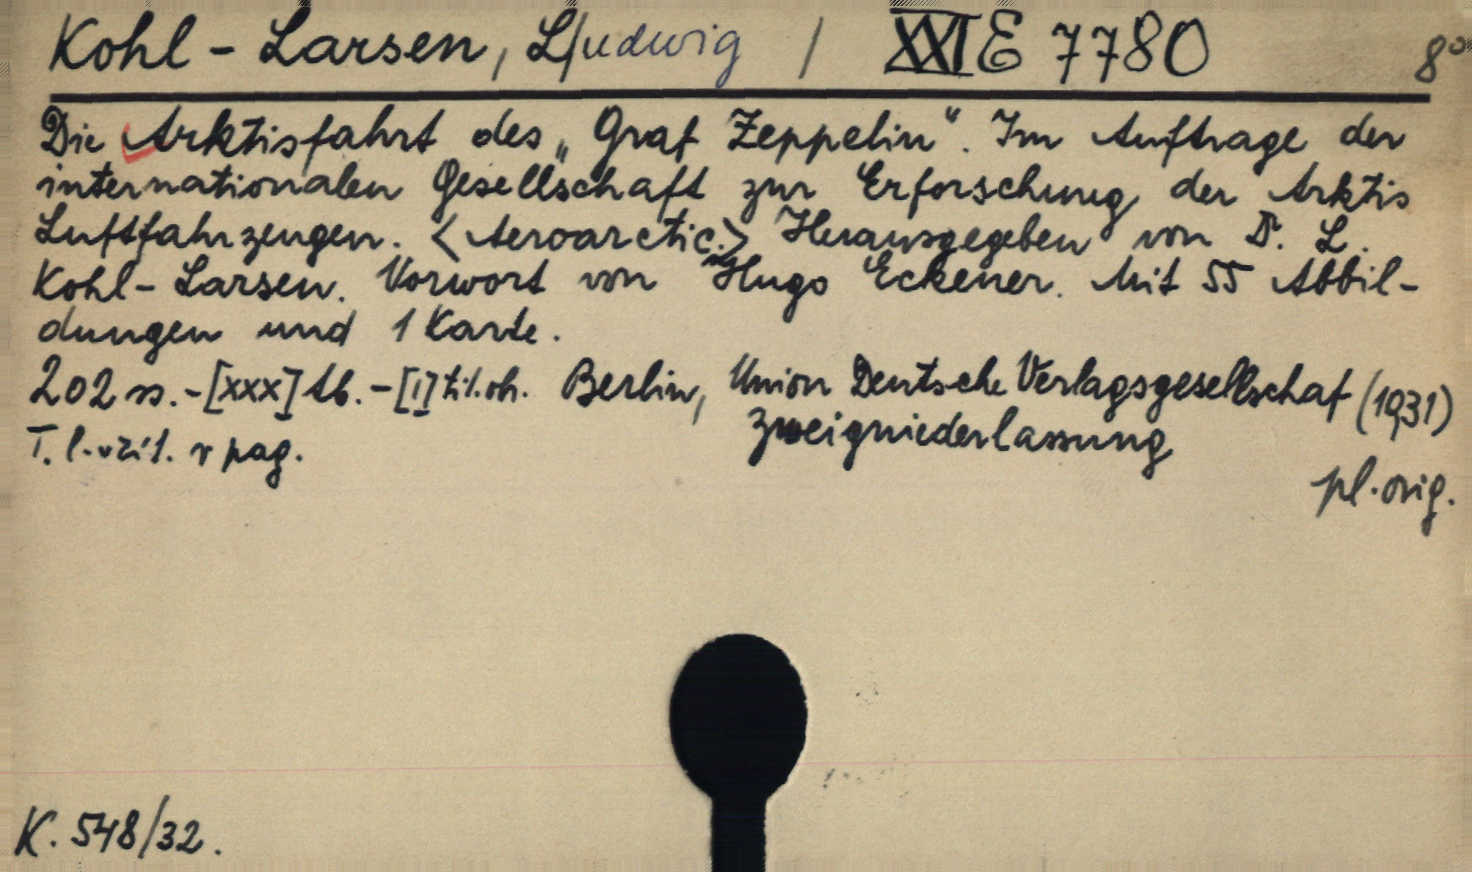 Kohl-Larsen, L/udwig / XXI E 7780 8°
Die Arktisfahrt des „Graf Zeppelin“. Im Auftrage der
internationalen Gesellschaft zur Erforschung der Arktis
Luftfahrzeugen. <Aeroarctic.> Herausgegeben von Dr. L.
Kohl-Larsen. Vorwort von Hugo Eckener. Mit 55 Abbil-
dungen und 1 Karte.
202 s.-[XXX] tb.-[1] Berlin, Union Deutsche Verlagsgesellschaf (1931)
Zweigniederlassung
T. l. v pag.
pl. orig.
K. 548/32.